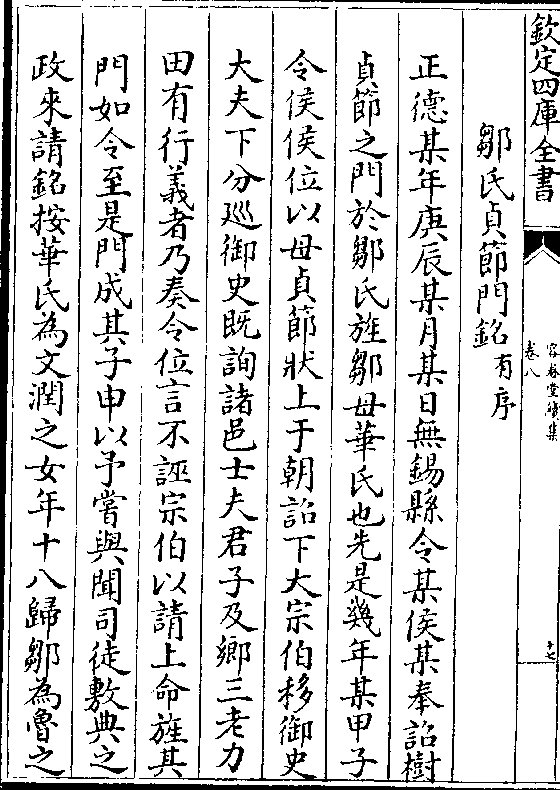 欽定四庫全書
容春堂續集
卷八
十七
鄒氏貞節門銘有序
正德某年庚辰某月某日無錫縣令某侯某奉詔樹
貞節之門於鄒氏旌鄒母華氏也先是幾年某甲子
令侯侯位以母貞節狀上于朝詔下大宗伯移御史
大夫下分巡御史既詢諸邑士夫君子及鄉三老力
田有行義者乃奏令位言不誣宗伯以請上命旌其
門如令至是門成其子申以予嘗與聞司徒敷典之
政來請銘按華氏為文潤之女年十八歸鄒為魯之